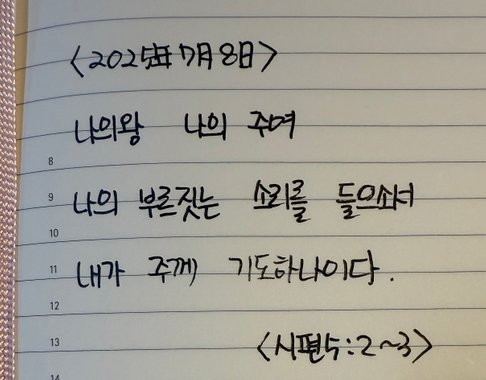 <2025年 7月 8日>
나의왕 나의 주여
8
나의 부르짖는 소리를 들으쇼셔
9
10
내가 주께 기도하나이다.
11
12
<시편5:2~3>
13
14